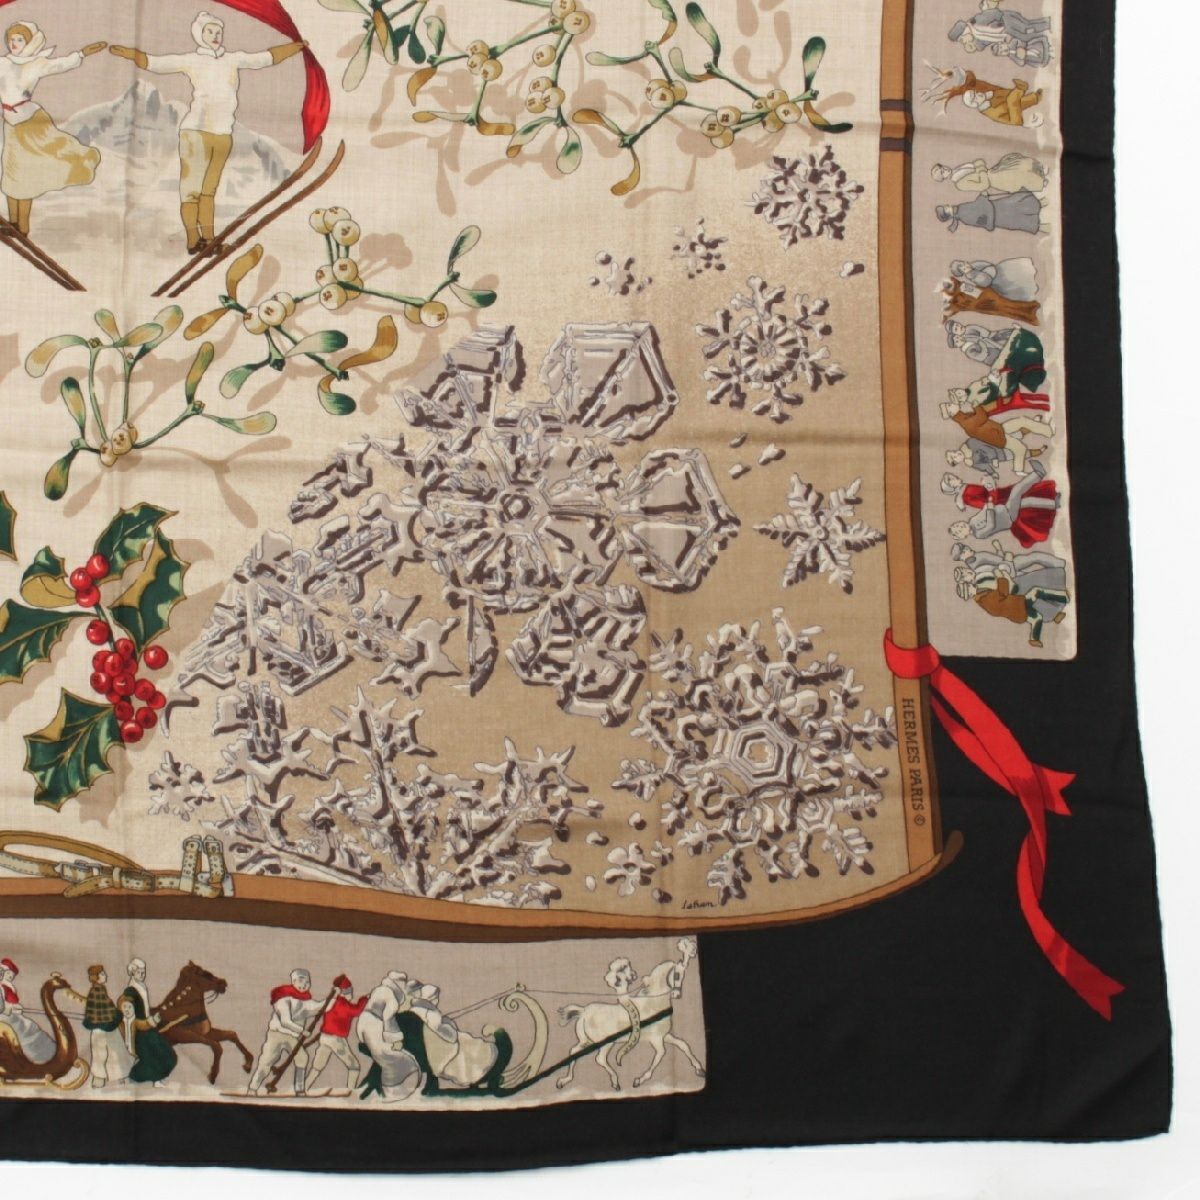 HERMÈS PARIS ©
Latham